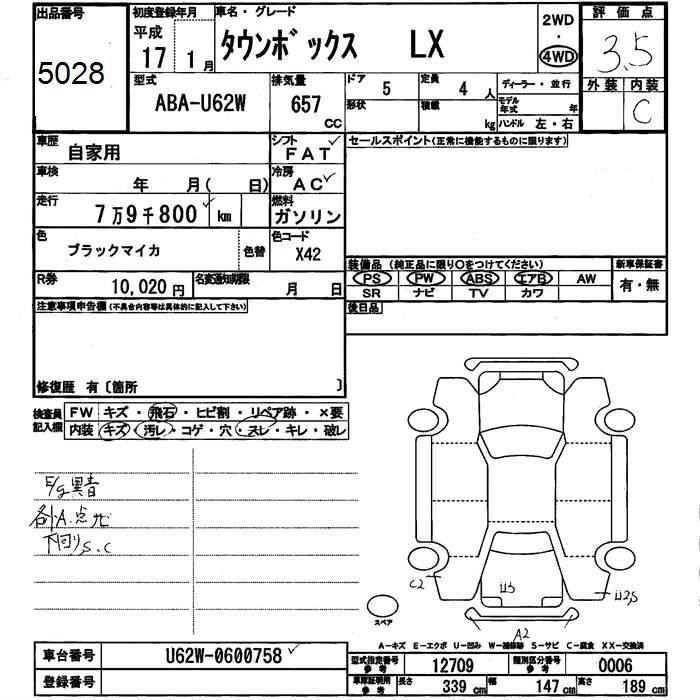 出品番号
5028
初度登録年月
平成
17 1月
車名・グレード
タウンボックス LX
2WD
・
4WD
評価点
3.5
外装 内装
C
型式
ABA-U62W
排気量
657
CC
ドア 5
定員 4 人
形状
積載 kg
ディーラー・並行
モデル年式 年
ハンドル 左・右
車歴
自家用
シフト
FAT
セールスポイント(正常に機能するものに限ります)
車検
年 月( 日)
冷房
AC
走行
7万9千800 km
燃料
ガソリン
色
ブラックマイカ
色替
色コード
X42
装備品 (純正品に限り○をつけてください)
新車保証書
PS PW ABS エアB AW
有・無
SR ナビ TV カワ
R券
10,020 円
名変通知期限
月 日
後日品
注意事項申告欄(不具合内容等は具体的に記入して下さい)
修復歴 有〔箇所 〕
検査員
記入欄
FW キズ・飛石・ヒビ割・リペア跡・×要
内装 キズ・汚レ・コゲ・穴・ヌレ・キレ・破レ
E/g異音
各A.点サビ
下回りS.C
C2
U3
U2,S
A2
スペア
A-キズ E-エクボ U-凹み W-補修跡 S-サビ C-腐食 XX-交換済
車台番号
U62W-0600758
登録番号
型式指定番号
参考
12709
類別区分番号
参考
0006
車庫証明用
参考
長さ 339 cm
幅 147 cm
高さ 189 cm